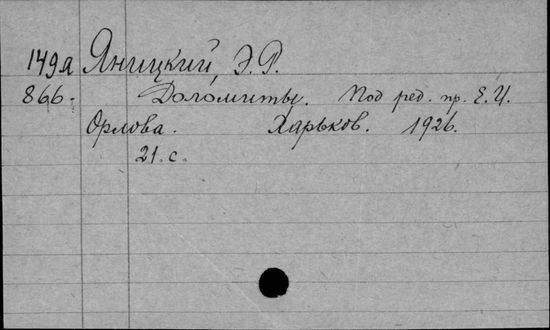 149а Яницкий, Э.Р.
866. Доломиты. Под ред. пр. Е.И.
Орлова. Харьков. 1926.
21. с.